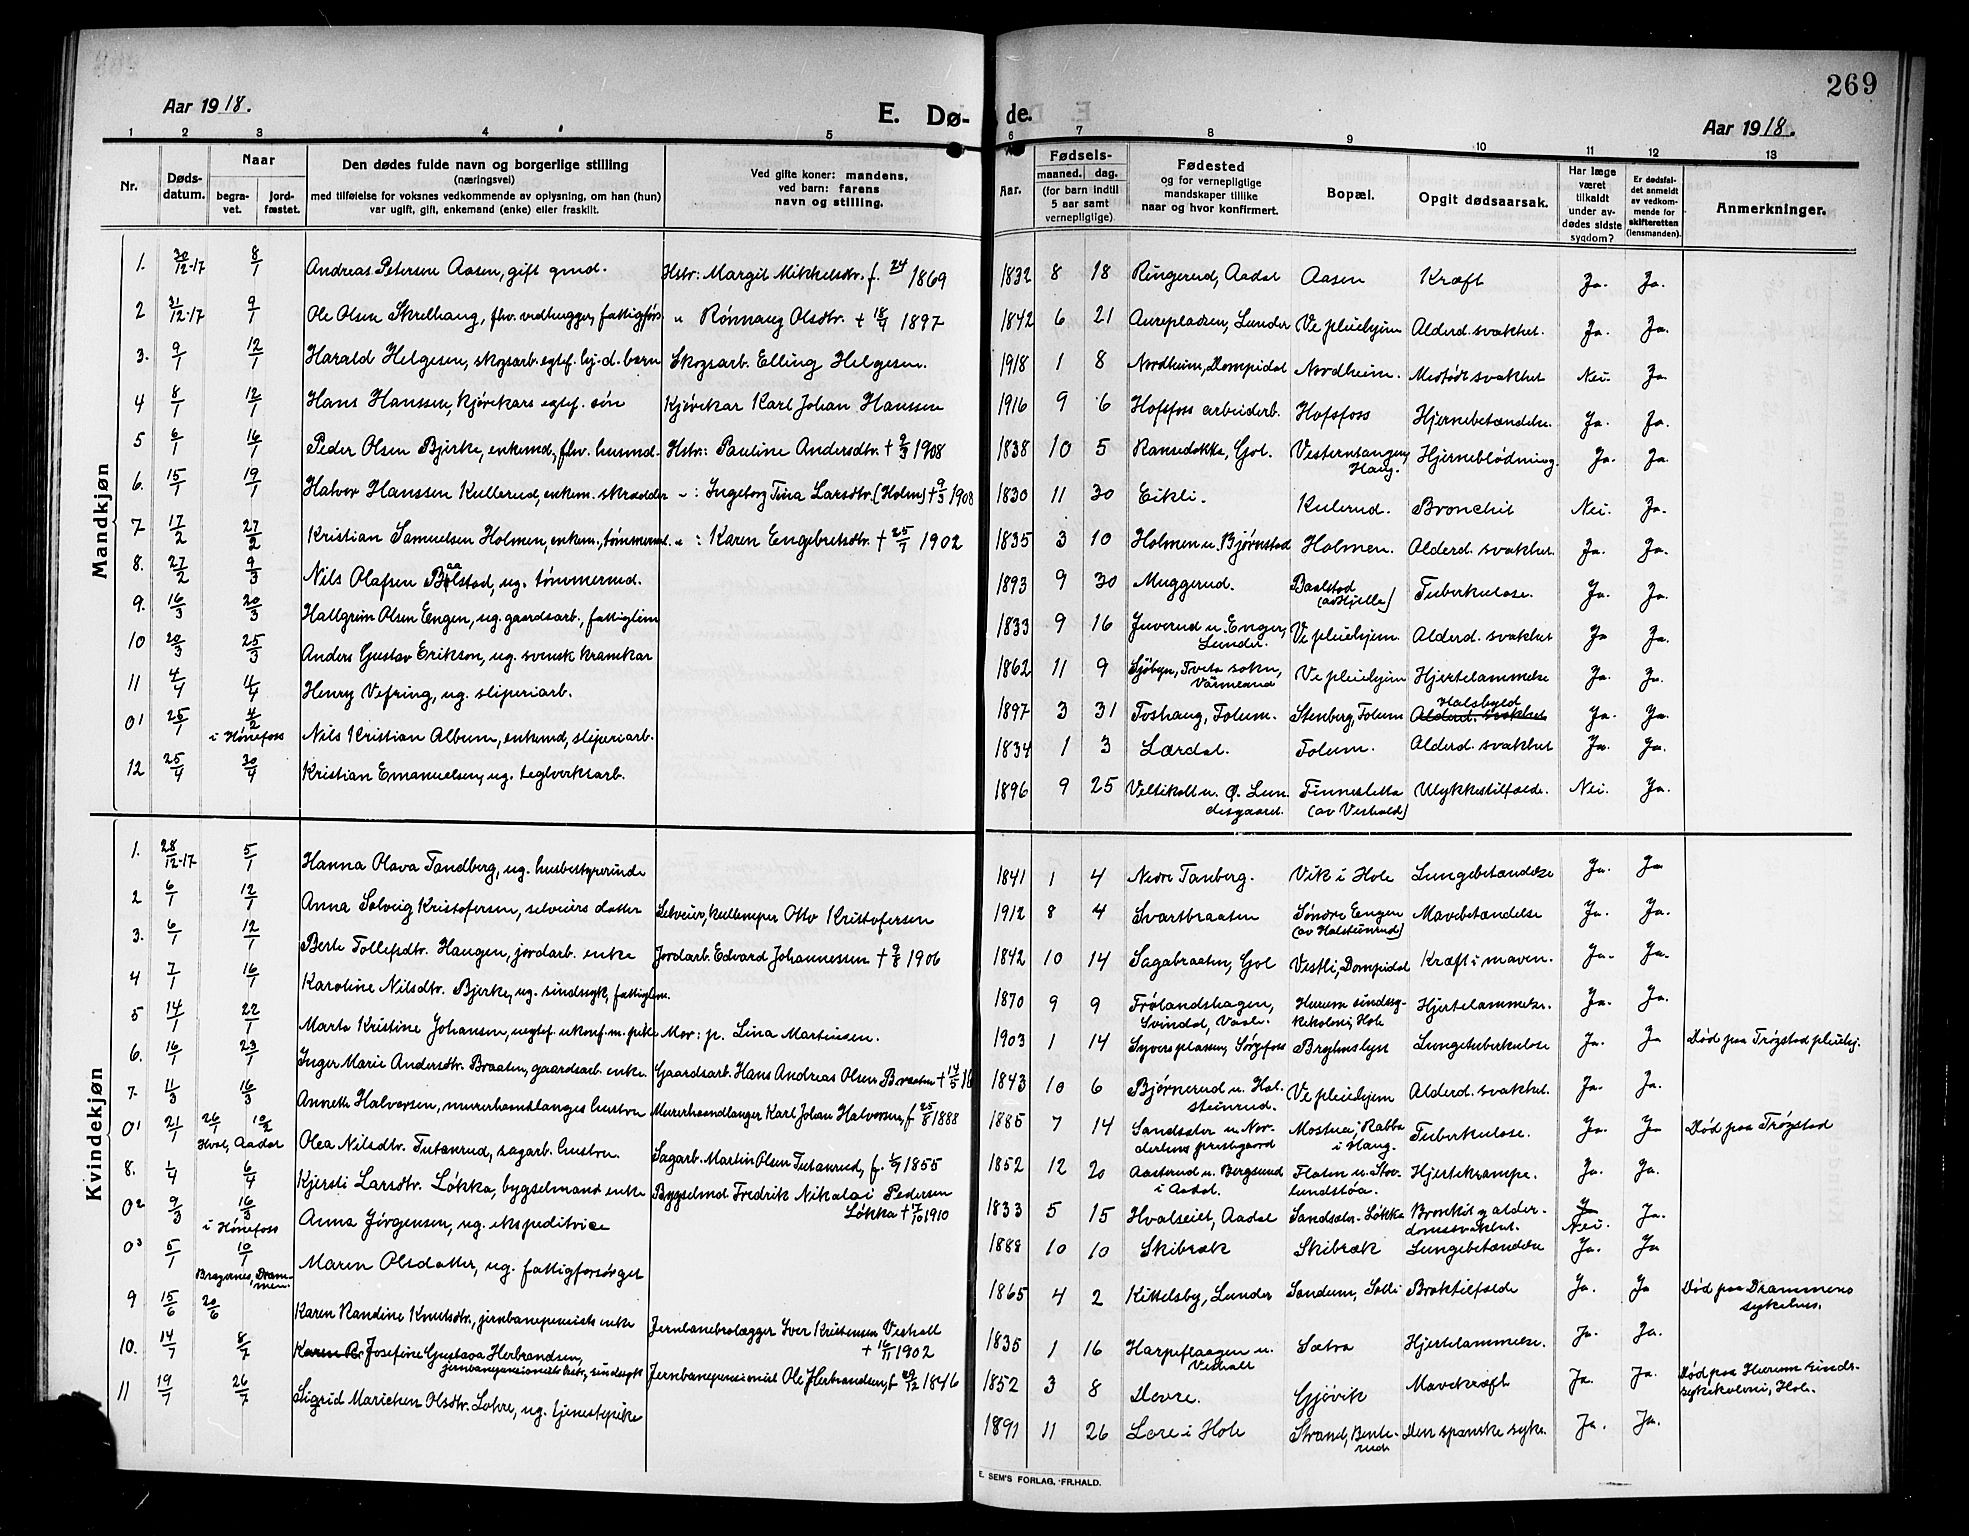 269
Aar 1918.
E. Dø- de.
Aar 1918.
1 2 3 4 5 6 7 8 9 10 11 12 13
Nr. Døds-datum. Naar begra-vet. jord-fæstet. Den dødes fulde navn og borgerlige stilling (næringsvei) med tilføielse for voksnes vedkommende av oplysning, om han (hun) var ugift, gift, enkemand (enke) eller fraskilt. Ved gifte koner: mandens, ved barn: farens navn og stilling. Aar. Fødsels- maaned. dag. (for barn indtil 5 aar samt vernepligtige). Fødested og for vernepligtige mandskaper tillike naar og hvor konfirmert. Bopæl. Opgit dødsaarsak. Har læge været tilkaldt under av-dødes sidste sygdom? Er dødsfal-det anmeldt av vedkom-mende for skifteretten (lensmanden). Anmerkninger.
Mandkjøn
1. 30/12-17 8/1 Andreas Petersen Aasen, gift gmd. Hstr: Margit Mikkelsdtr. f. 24 1869 1832 8 18 Ringerud, Aadal Aasen Kræft Ja. Ja.
2 31/12-17 9/1 Ole Olsen Skrelhaug, fhv. vedhugger, fattigfors. " Rønnaug Olsdtr. + 18/9 1897 1842 6 21 Aurepladsen, Lunder Ve pleiehjem Alderd. svakhet. Ja. Ja.
3. 9/1 12/1 Harald Helgesen, skogsarb. egtef. hj-d. barn Skogsarb. Elling Helgesen. 1918 1 8 Nordheim, Dompidal Nordheim. Medfødt svakhet Nei. Ja.
4 8/1 12/1 Hans Hanssen, kjørekars egtef. søn Kjørekar Karl Johan Hanssen 1916 9 6 Hofsfoss arbeiderb. Hofsfoss Hjernebetændelse. Ja. Ja.
5 6/1 16/1 Peder Olsen Bjerke, enkemd, fhv. husmd. Hstr: Pauline Andersdtr. + 2/3 1908 1838 10 5 Ransedokka, Gol. Vesterntangen, Haug. Hjerneblødning. Ja. Ja
6. 15/1 19/1 Halvor Hanssen Kullerud, enkem. skrædder " : Ingeborg Tina Larsdtr. (Holm) + 9/3 1908 1830 11 30 Eikli. Kulerud. Bronchit Nei. Ja.
7 17/2 27/2 Kristian Samuelsen Holmen, enkem., tømmermd. " : Karen Engebretsdtr. + 25/7 1902 1835 3 10 Holmen u. Bjørnstad Holmen. Alderd. svakhet. Ja. Ja.
8. 27/2 9/3 Nils Olafsen Baalstad, ug. tømmermd. 1893 9 30 Muggerud. Baalstad (av Hjelle) Tuberkulose. Ja. Ja.
9. 16/3 20/3 Hallgrim Olsen Engen, ug. gaardsarb., fattiglem 1833 9 16 Juverud u. Enger, Lunder. Ve pleiehjem. Alderd. svakhet Ja Ja.
10 20/3 25/3 Anders Gustav Erikson, ug. svensk kramkar 1862 11 9 Sjöbyn, Tveta sokn, Värmland Ve pleiehjem Hjertelammelse Ja. Ja.
11 4/4 11/4 Henry Vefring, ug. sliperiarb. 1897 3 31 Toshaug, Folum. Stenberg, Folum Halsbyld Alderd. svakhet Ja. Ja.
01 25/1 4/2 i Hønefoss Nils Kristian Album, enkemd, sliperiarb. 1834 1 3 Lærdal. Folum. Alderd. svakhet Ja. Ja.
12 25/4 30/4 Kristian Emanuelsen, ug. teglverksarb. 1896 9 25 Veltikolt u. Ø. Lundesgaard. Finnesletta (av Veshald) Ulykkestilfælde. Nei. Ja.
Kvindekjøn
1. 28/12-17 5/1 Hanna Olava Tandberg, ug. husbestyrerinde 1841 1 4 Nedre Tanberg. Vik i Hole Lungebetændelse Ja. Ja
2 6/1 12/1 Anna Solveig Kristofersen, selveiers datter Selveier, kullemper Otto Kristofersen 1912 8 4 Svartbraaten Søndre Engen (av Holsteinrud) Mavebetændelse Ja. Ja.
3. 6/1 12/1 Berte Tollefsdtr. Haugen, jordarb. enke Jordarb. Edvard Johannesen + 9/8 1906 1842 10 14 Sagabraaten, Gol Vestli, Dompidal Kræft i maven. Ja. Ja.
4 7/1 16/1 Karoline Nilsdtr. Bjerke, ug. sindssyk, fattiglem. 1870 9 9 Frølandshagen, Svindal, Vaaler. Hurum sindssykekoloni, Hole Hjertelammelse. Ja. Ja.
5 14/1 22/1 Marta Kristine Johansen, uegtef. ukonf. m. pike Mor: p. Lina Martinsen. 1903 1 14 Syversplassen, Sørgefoss Brglunslyst Lungetuberkulose Ja. Ja Død paa Trøgstad pleiehj.
6. 16/1 23/1 Inger Marie Andersdtr. Braaten, gaardsarb. enke. Gaardsarb. Hans Andreas Olsen Braaten + 14/5 16 1843 10 6 Bjørnerud u. Holsteinrud. Ve pleiehjem Alderd. svakhet. Ja. Ja.
7. 11/3 16/3 Anneth Halvorsen, murerhandlangers hustru Murerhandlanger Karl Johan Halvorsen, f. 25/8 1888 1885 7 14 Sandsæter u. Norderhovs prestegaard Mostue, Rabba i Haug. Tuberkulose. Ja. Ja Død paa Trøgstad
01 21/1 26/1 10/2 Hval, Aadal Olea Nilsdtr. Tutanrud, sagarb. hustru. Sagarb. Martin Olsen Tutanrud, f. 1/9 1855 1852 12 20 Aasterud u. Bergsund i Aadal. Flaten u. Storlundstøa. Hjertekrampe. Ja. Ja.
8. 1/4 6/4 Kjersti Larsdtr. Løkka, bygselmand enke Bygselmd. Fredrik Nikolai Pedersen Løkka + 7/10 1910 1833 5 15 Hvalseiet, Aadal Sandsæter-Løkka Bronkit og alderdomssvakhet. Ja Nei. Ja.
02 9/3 16/3 i Hønefoss Anna Jørgensen, ug. ekspeditrice 1888 10 10 Skibræk Skibræk Lungebetændelse Ja. Ja
03 5/1 10/1 Bragernes, Drammen Maren Olsdatter, ug. fattigforsørget 1865 4 2 Kittelsby, Lunder Sandum, Solli Broktilfælde Ja. Ja Død paa Drammens sykehus.
9 15/6 20/6 Karen Randine Knutsdtr., jernbanepensists enke Jernbanebrolægger Iver Kristensen Veshall + 16/11 1902 1835 1 16 Harpeflaagen u. Veshall Sætra Hjertelammelse. Ja. Ja.
10. 14/7 8/7 Karen R. Josefine Gustava Herbrandsen, jernbanepensionists hstr., sindssyk Jernbanepensionist Ole Herbrandsen, f. 29/12 1846 1852 3 8 Dovre. Gjøvik Mavekræft Ja. Ja. Død paa Hurum sindssykekoloni, Hole.
11 19/7 26/7 Sigrid Marichen Olsdtr. Lohre, ug. tjenestepike 1891 11 26 Lore i Hole Strand, Benterud Den spanske syke. Ja. Ja.
E. SEM'S FORLAG, FR.HALD.